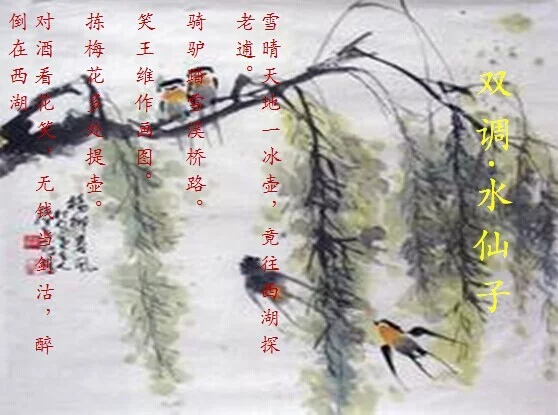 双调·水仙子
雪晴天地一冰壶，竟往西湖探
老逋。
骑驴踏雪溪桥路。
笑王维作画图。
拣梅花多处提壶。
对酒看花笑，无钱当剑沽，醉
倒在西湖